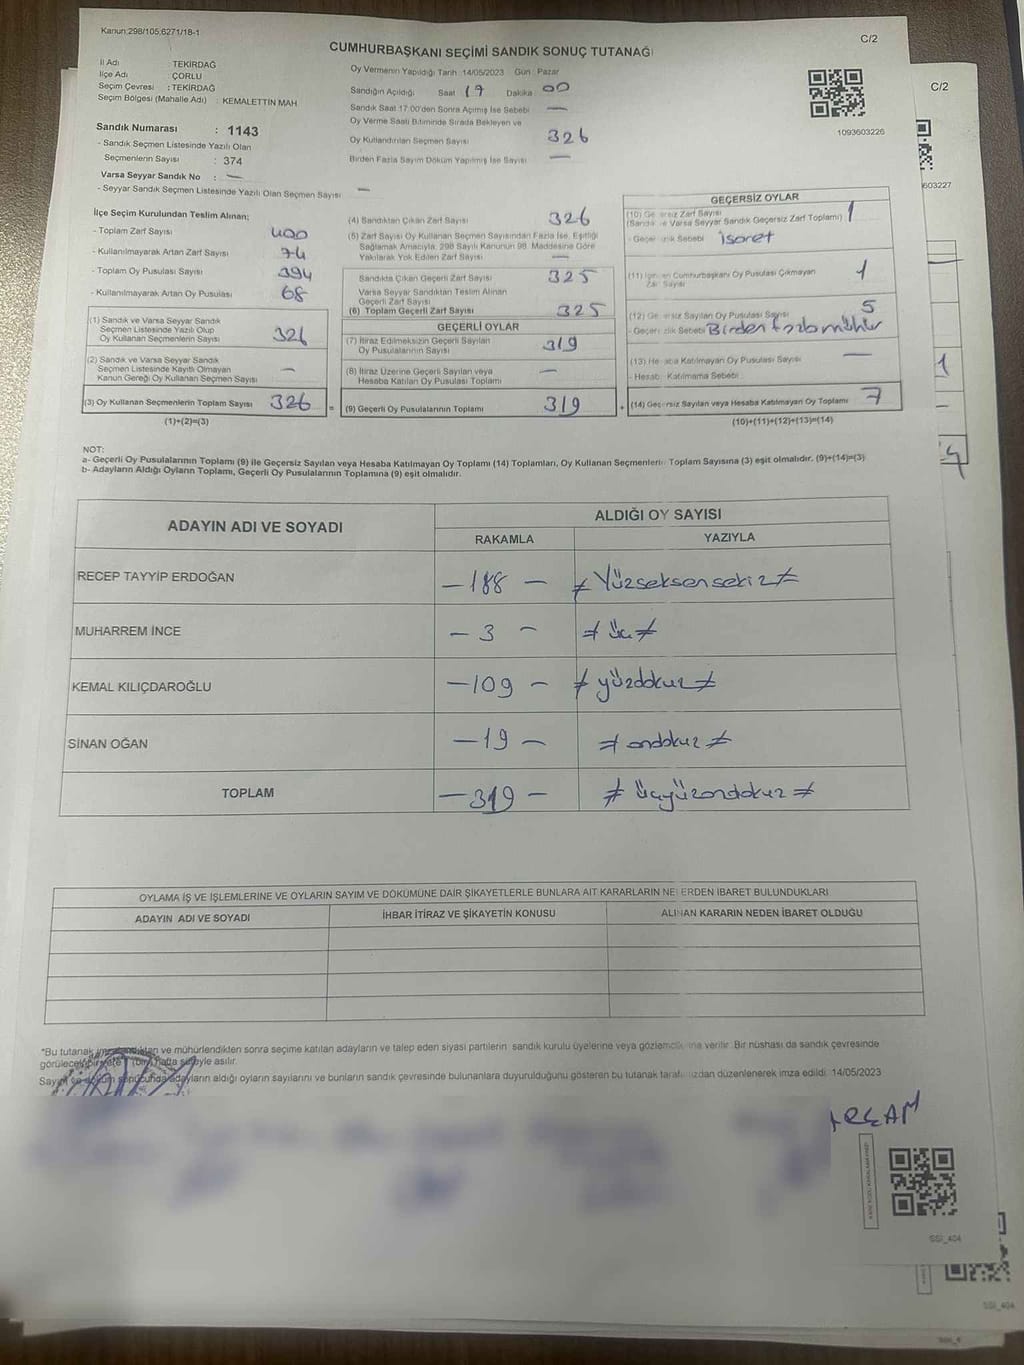 Kanun:298/105;6271/18-1
C/2
CUMHURBAŞKANI SEÇİMİ SANDIK SONUÇ TUTANAĞI
C/2
İl Adı : TEKİRDAĞ
İlçe Adı : ÇORLU
Seçim Çevresi : TEKİRDAĞ
Seçim Bölgesi (Mahalle Adı) : KEMALETTİN MAH
Sandık Numarası : 1143
- Sandık Seçmen Listesinde Yazılı Olan
Seçmenlerin Sayısı : 374
Varsa Seyyar Sandık No : —
- Seyyar Sandık Seçmen Listesinde Yazılı Olan Seçmen Sayısı —
Oy Vermenin Yapıldığı Tarih: 14/05/2023 Gün: Pazar
Sandığın Açıldığı Saat 17 Dakika 00
Sandık Saat 17:00'den Sonra Açılmış İse Sebebi —
Oy Verme Saati Bitiminde Sırada Bekleyen ve
Oy Kullandırılan Seçmen Sayısı 326
Birden Fazla Sayım Döküm Yapılmış İse Sayısı —
1093603226
603227
İlçe Seçim Kurulundan Teslim Alınan;
- Toplam Zarf Sayısı 400
- Kullanılmayarak Artan Zarf Sayısı 74
- Toplam Oy Pusulası Sayısı 394
- Kullanılmayarak Artan Oy Pusulası 68
(1) Sandık ve Varsa Seyyar Sandık
Seçmen Listesinde Yazılı Olup
Oy Kullanan Seçmenlerin Sayısı 326
(2) Sandık ve Varsa Seyyar Sandık
Seçmen Listesinde Kayıtlı Olmayan
Kanun Gereği Oy Kullanan Seçmen Sayısı —
(3) Oy Kullanan Seçmenlerin Toplam Sayısı 326 =
(1)+(2)=(3)
(4) Sandıktan Çıkan Zarf Sayısı 326
(5) Zarf Sayısı Oy Kullanan Seçmen Sayısından Fazla İse, Eşitliği
Sağlamak Amacıyla, 298 Sayılı Kanunun 98. Maddesine Göre
Yakılarak Yok Edilen Zarf Sayısı —
Sandıkta Çıkan Geçerli Zarf Sayısı 325
Varsa Seyyar Sandıktan Teslim Alınan
Geçerli Zarf Sayısı
(6) Toplam Geçerli Zarf Sayısı 325
GEÇERLİ OYLAR
(7) İtiraz Edilmeksizin Geçerli Sayılan
Oy Pusulalarının Sayısı 319
(8) İtiraz Üzerine Geçerli Sayılan veya
Hesaba Katılan Oy Pusulası Toplamı —
(9) Geçerli Oy Pusulalarının Toplamı 319 +
GEÇERSİZ OYLAR
(10) Geçersiz Zarf Sayısı 1
(Sandık ve Varsa Seyyar Sandık Geçersiz Zarf Toplamı)
- Geçersizlik Sebebi işaret
(11) Cumhurbaşkanı Oy Pusulası Çıkmayan 1
Zarf Sayısı
(12) Geçersiz Sayılan Oy Pusulası Sayısı 5
- Geçersizlik Sebebi Birden fazla mühür
(13) Hesaba Katılmayan Oy Pusulası Sayısı —
- Hesaba Katılmama Sebebi
(14) Geçersiz Sayılan veya Hesaba Katılmayan Oy Toplamı 7
(10)+(11)+(12)+(13)=(14)
NOT:
a- Geçerli Oy Pusulalarının Toplamı (9) ile Geçersiz Sayılan veya Hesaba Katılmayan Oy Toplamı (14) Toplamları, Oy Kullanan Seçmenlerin Toplam Sayısına (3) eşit olmalıdır. (9)+(14)=(3)
b- Adayların Aldığı Oyların Toplamı, Geçerli Oy Pusulalarının Toplamına (9) eşit olmalıdır.
ADAYIN ADI VE SOYADI
ALDIĞI OY SAYISI
RAKAMLA YAZIYLA
RECEP TAYYİP ERDOĞAN —188— ≠ Yüzseksensekiz ≠
MUHARREM İNCE — 3 — ≠ üç ≠
KEMAL KILIÇDAROĞLU —109— ≠ yüzdokuz ≠
SİNAN OĞAN —19— ≠ ondokuz ≠
TOPLAM —319— ≠ üçyüzondokuz ≠
OYLAMA İŞ VE İŞLEMLERİNE VE OYLARIN SAYIM VE DÖKÜMÜNE DAİR ŞİKAYETLERLE BUNLARA AİT KARARLARIN NELERDEN İBARET BULUNDUKLARI
ADAYIN ADI VE SOYADI İHBAR İTİRAZ VE ŞİKAYETİN KONUSU ALINAN KARARIN NEDEN İBARET OLDUĞU
*Bu tutanak imzalandıktan ve mühürlendikten sonra seçime katılan adayların ve talep eden siyasi partilerin sandık kurulu üyelerine veya gözlemcilerine verilir. Bir nüshası da sandık çevresinde
görülecek bir yere (bir) hafta süreyle asılır.
Sayım ve döküm sonucunda adayların aldığı oyların sayılarını ve bunların sandık çevresinde bulunanlara duyurulduğunu gösteren bu tutanak tarafımızdan düzenlenerek imza edildi. 14/05/2023
SSİ_404
SSİ_404